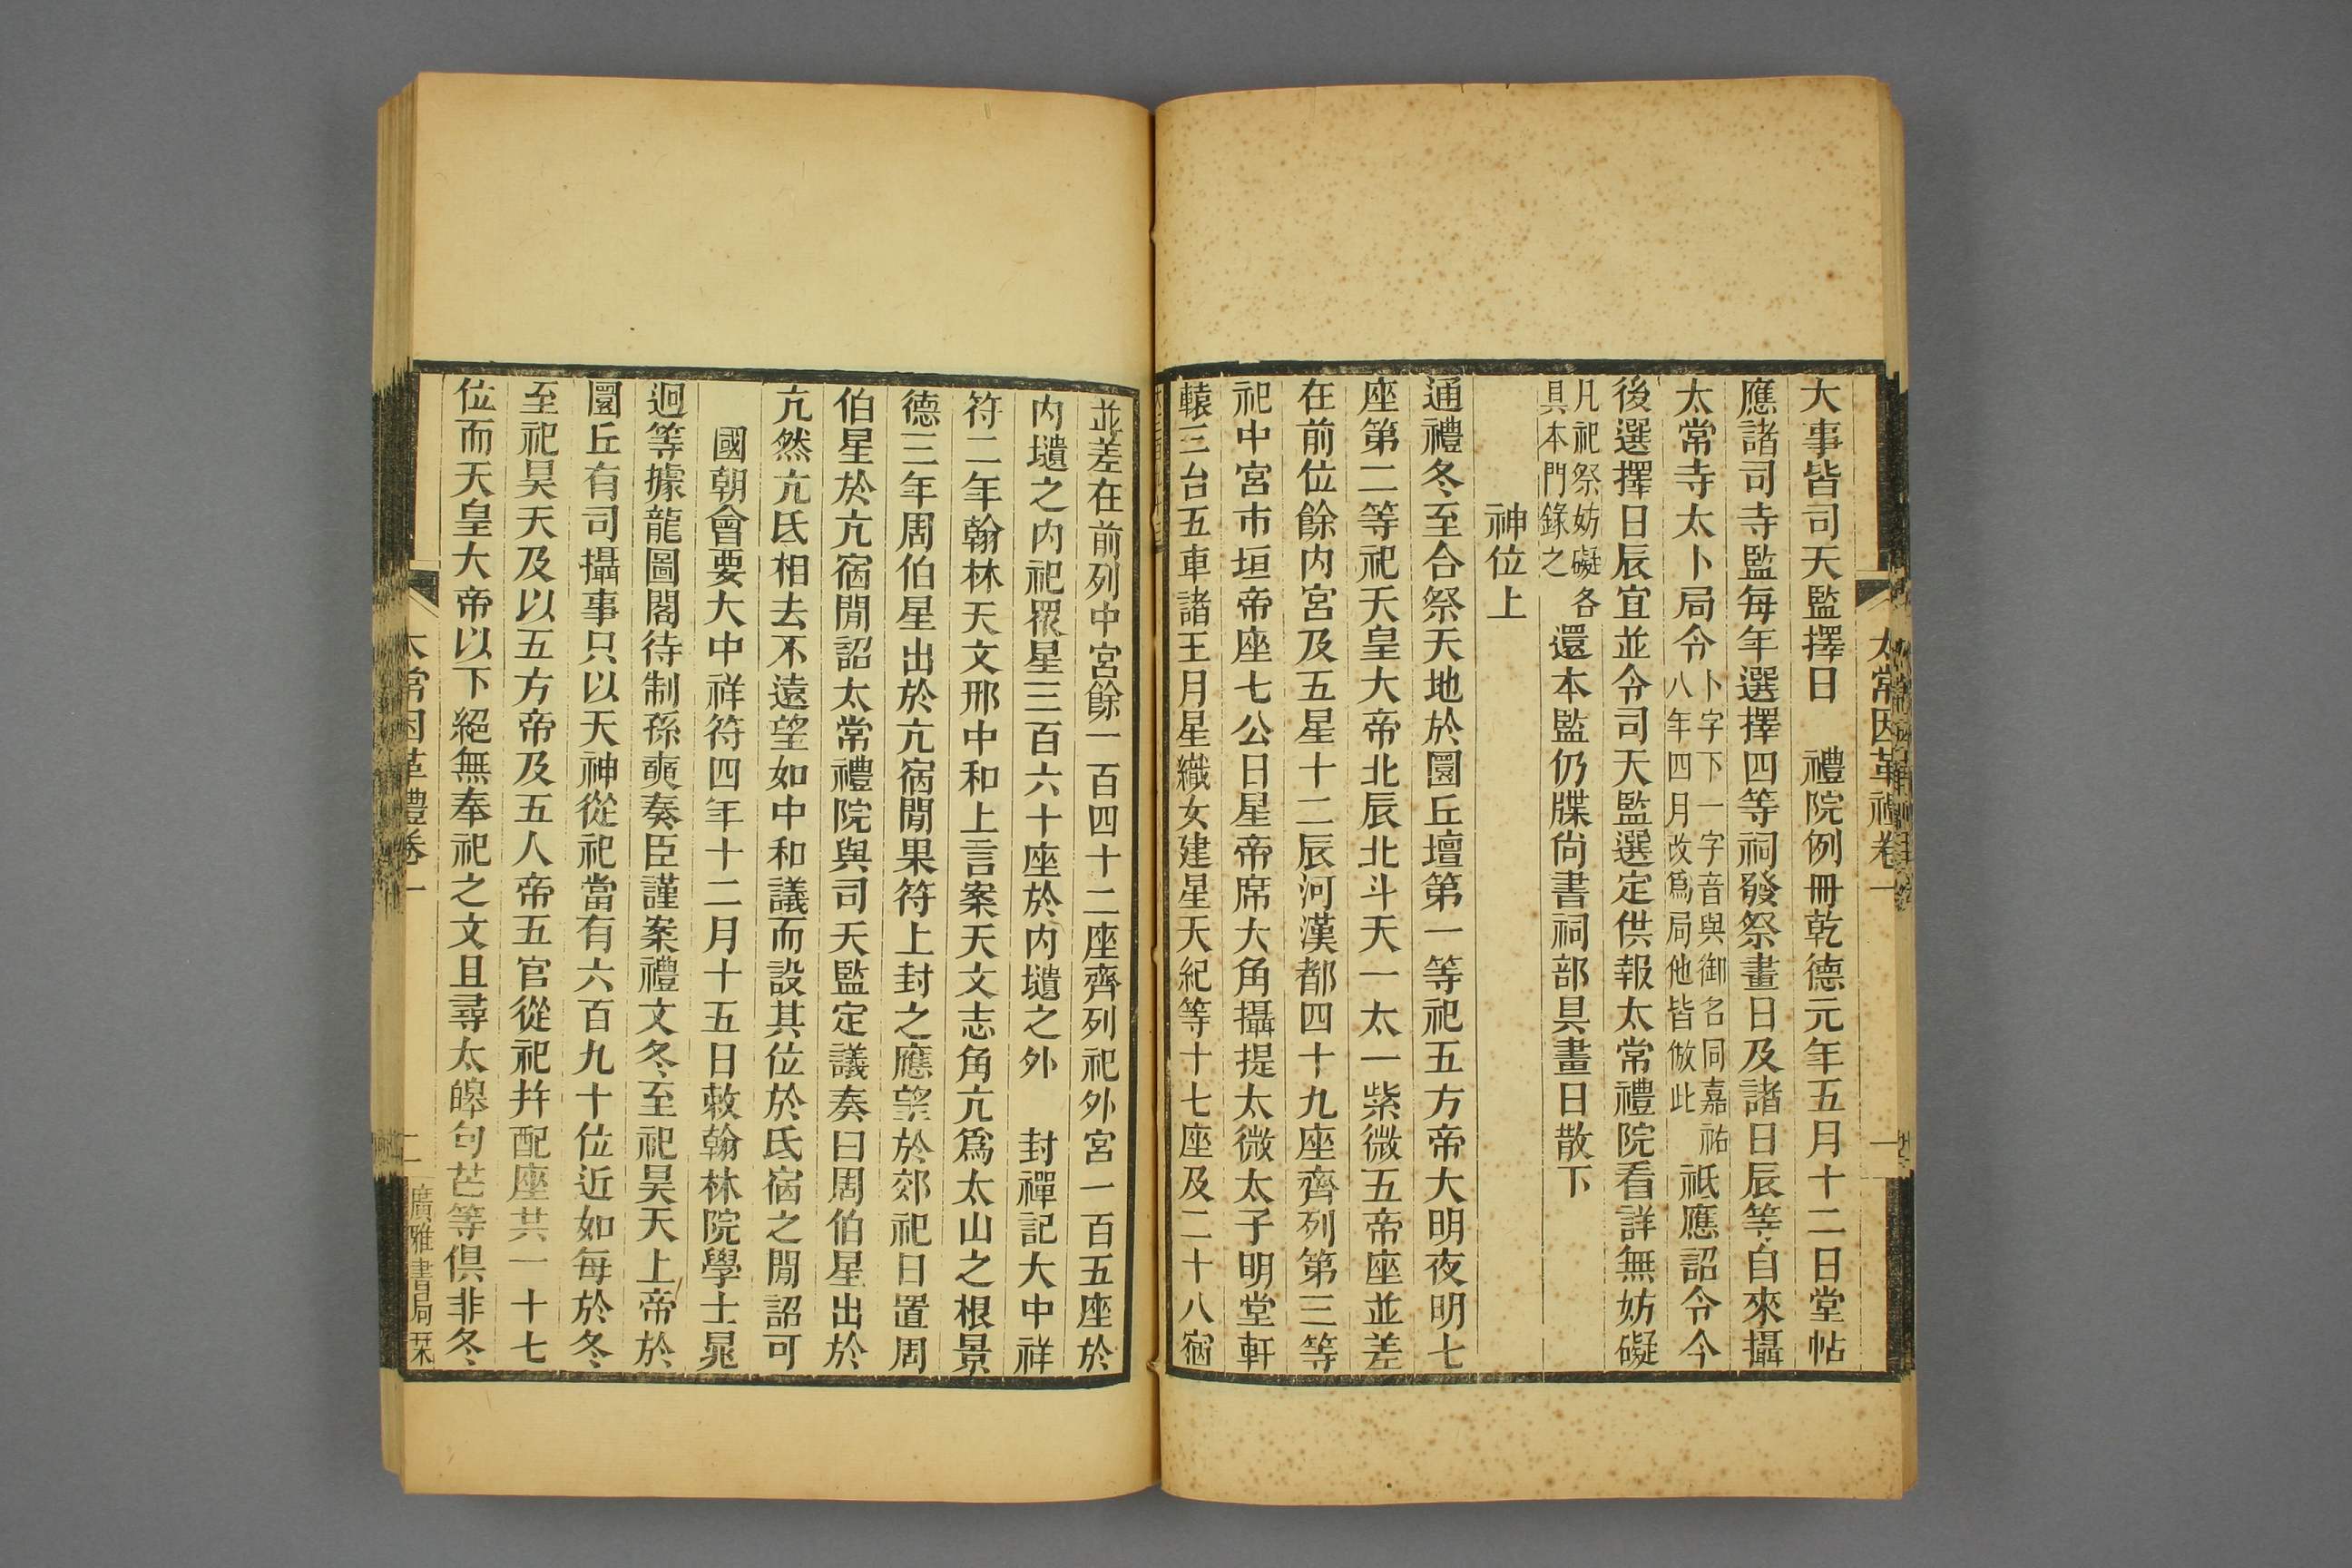 太常因革禮卷一
一
大事皆司天監擇日　禮院例冊乾德元年五月十二日堂帖
應諸司寺監每年選擇四等祠發祭畫日及諸日辰等自來攝
太常寺太卜局令卜字下一字音與御名同嘉祐八年四月改爲局他皆倣此祇應詔令今
後選擇日辰宜並令司天監選定供報太常禮院看詳無妨礙
凡祀祭妨礙各具本門錄之還本監仍牒尙書祠部具畫日散下
神位上
通禮冬至合祭天地於圜丘壇第一等祀五方帝大明夜明七
座第二等祀天皇大帝北辰北斗天一太一紫微五帝座並差
在前位餘内宮及五星十二辰河漢都四十九座齊列第三等
祀中宮市垣帝座七公日星帝席大角攝提太微太子明堂軒
轅三台五車諸王月星織女建星天紀等十七座及二十八宿
並差在前列中宮餘一百四十二座齊列祀外宮一百五座於
内壝之内祀眾星三百六十座於内壝之外　封禪記大中祥
符二年翰林天文邢中和上言案天文志角亢爲太山之根景
德三年周伯星出於亢宿閒果符上封之應望於郊祀日置周
伯星於亢宿閒詔太常禮院與司天監定議奏曰周伯星出於
亢然亢氐相去不遠望如中和議而設其位於氐宿之閒詔可
國朝會要大中祥符四年十二月十五日敕翰林院學士晁
迥等據龍圖閣待制孫奭奏臣謹案禮文冬至祀昊天上帝於
圜丘有司攝事只以天神從祀當有六百九十位近如每於冬
至祀昊天及以五方帝及五人帝五官從祀幷配座共一十七
位而天皇大帝以下絕無奉祀之文且尋太皞句芒等俱非冬
太常因革禮卷一
二
廣雅書局栞